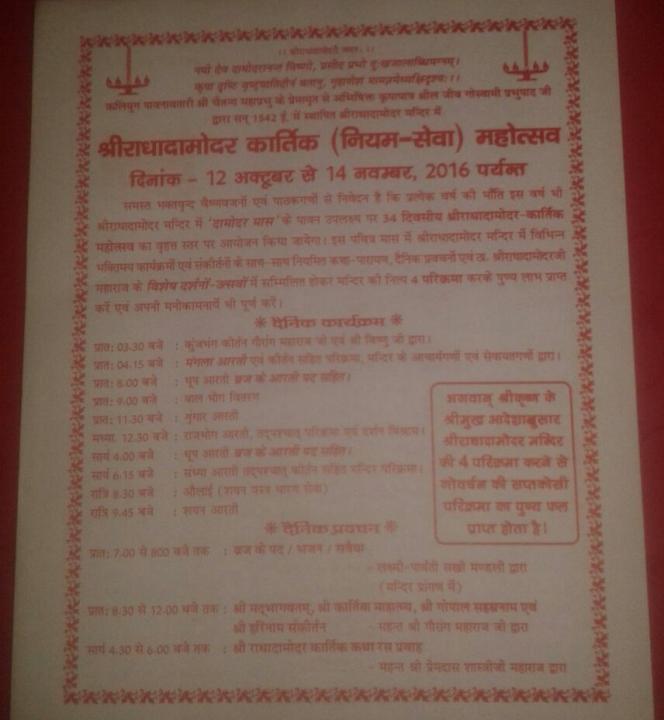 ।। श्रीराधादामोदरौ जयतः ।।
नमो देव दामोदरानन्त विष्णो, प्रसीद प्रभो दुःखजालाब्धिमग्नम्।
कृपा दृष्टि वृष्ट्यातिदीनं बतानु, गृहाणेश मामज्ञमेध्यक्षिदृश्यः।।
कलियुग पावनावतारी श्री चैतन्य महाप्रभु के प्रेमामृत से अभिषिक्त कृपापात्र श्रील जीव गोस्वामी प्रभुपाद जी
द्वारा सन् 1542 ई. में स्थापित श्रीराधादामोदर मन्दिर में
श्रीराधादामोदर कार्तिक (नियम-सेवा) महोत्सव
दिनांक - 12 अक्टूबर से 14 नवम्बर, 2016 पर्यन्त
समस्त भक्तवृन्द वैष्णवजनों एवं पाठकगणों से निवेदन है कि प्रत्येक वर्ष की भाँति इस वर्ष भी
श्रीराधादामोदर मन्दिर में 'दामोदर मास' के पावन उपलक्ष्य पर 34 दिवसीय श्रीराधादामोदर-कार्तिक
महोत्सव का वृहत्त स्तर पर आयोजन किया जायेगा। इस पवित्र मास में श्रीराधादामोदर मन्दिर में विभिन्न
भक्तिमय कार्यक्रमों एवं संकीर्तनों के साथ-साथ नियमित कथा-पारायण, दैनिक प्रवचनों एवं ठा. श्रीराधादामोदरजी
महाराज के विशेष दर्शनों-उत्सवों में सम्मिलित होकर मन्दिर की नित्य 4 परिक्रमा करके पुण्य लाभ प्राप्त
करें एवं अपनी मनोकामनायें भी पूर्ण करें।
❋ दैनिक कार्यक्रम ❋
प्रात: 03.30 बजे : कुंजभंग कीर्तन गौरांग महाराज जी एवं श्री विष्णु जी द्वारा।
प्रात: 04.15 बजे : मंगला आरती एवं कीर्तन सहित परिक्रमा, मन्दिर के आचार्यगणों एवं सेवायतगणों द्वारा।
प्रात: 8.00 बजे : धूप आरती ब्रज के आरती पद सहित।
प्रात: 9.00 बजे : बाल भोग वितरण
प्रात: 11.30 बजे : शृंगार आरती
मध्या. 12.30 बजे : राजभोग आरती, तद्पश्चात् परिक्रमा एवं दर्शन विश्राम।
सायं 4.00 बजे : धूप आरती ब्रज के आरती पद सहित।
सायं 6.15 बजे : संध्या आरती तद्पश्चात् कीर्तन सहित मन्दिर परिक्रमा।
रात्रि 8.30 बजे : औलाई (शयन वस्त्र धारण सेवा)
रात्रि 9.45 बजे : शयन आरती
भगवान् श्रीकृष्ण के
श्रीमुख आदेशानुसार
श्रीराधादामोदर मन्दिर
की 4 परिक्रमा करने से
गोवर्धन की सप्तकोसी
परिक्रमा का पुण्य फल
प्राप्त होता है।
❋ दैनिक प्रवचन ❋
प्रात: 7.00 से 800 बजे तक : ब्रज के पद / भजन / सवैया
- लक्ष्मी-पार्वती सखी मण्डली द्वारा
(मन्दिर प्रांगण में)
प्रात: 8.30 से 12.00 बजे तक : श्री मद्भागवतम्, श्री कार्तिक माहात्म्य, श्री गोपाल सहस्रनाम एवं
श्री हरिनाम संकीर्तन - महन्त श्री गौरांग महाराज जी द्वारा
सायं 4.30 से 6.00 बजे तक : श्री राधादामोदर कार्तिक कथा रस प्रवाह
- महन्त श्री प्रेमदास शास्त्रीजी महाराज द्वारा